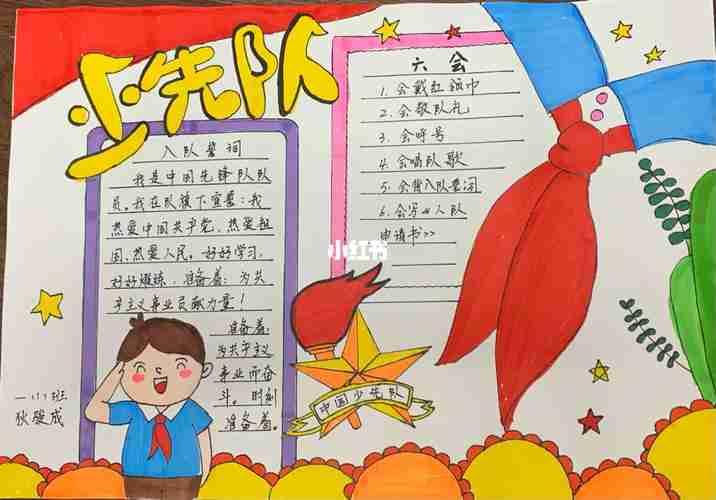 少先队
入队誓词
我是中国少年先锋队队
员。我在队旗下宣誓:我
热爱中国共产党,热爱祖
国,热爱人民,好好学习,
好好锻炼,准备着:为共
产主义事业贡献力量!
准备着
为共产主义
事业而奋
斗。时刻
准备着。
六会
1.会戴红领巾
2.会敬队礼
3.会呼号
4.会唱队歌
5.会背入队誓词
6.会写<<入队
申请书>>
小红书
中国少先队
一(1)班
狄骏成